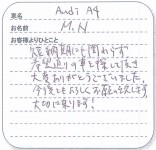 車名 Audi A4
お名前 M.N
お客様よりひとこと
短納期にも関わらず
希望通りの車を探して頂き
大変ありがとうございました。
今後ともよろしくお願い致します
大切に乗ります!